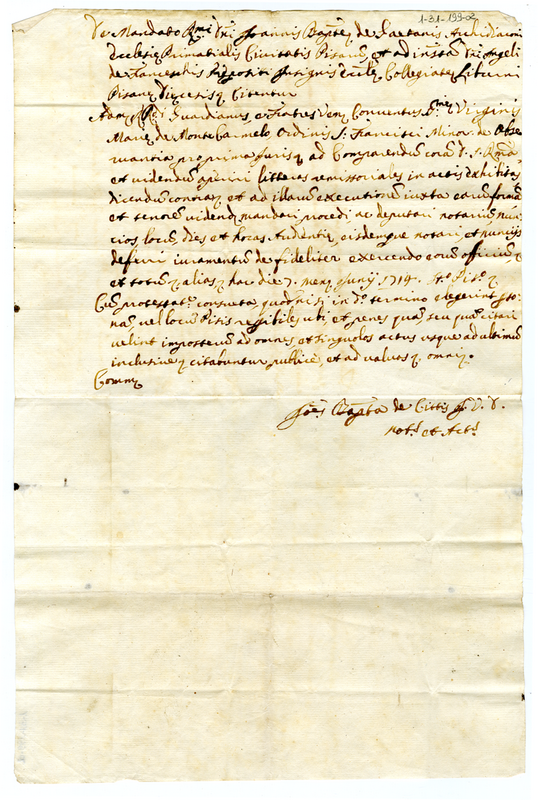 1-31-199-02
De Mandato Rmi Dni Joannis Bapte de Gaetanis Archidiaconi
Ecclesie Primatialis Civitatis Pisane, et ad instam Dni Angeli
de Franceschis Prepositi Insignis Eccle Collegiate Liburni
Pisane Diecesis Citentur
Adm Rdi Guardianus, et Fratres Ven Conventus Virginis
Marie de Monte Carmelo Ordinis S. Francisci Minor de Obse
rvantia pro prima Juris ad Comparendum coram D. S. Rma
et videndum aperiri litteras remissoriales in actis exhibitas
dicendum contra et ad illarum executionem iuxta earum formā
et tenorē videndū mandari procedi ac deputari notarium nūn
cios, locū, dies et horas Audientie, eisdemque notario, et nuncijs
deferri iuramentum de fideliter exercendo eorum officium
et totum alias hac die 7. mens Junij 1714.
Cum protestate consueta, quod nisi in do termino elegerint
vel locum Pisis ubi et penes quam seu quas citari
velint imposterum ad omnes et singulos actus usque ad ultimum
inclusive citabuntur publice, et ad valvas omni
Comm
Joes Bapta de Cittis J. V. D.
Nots et Acts